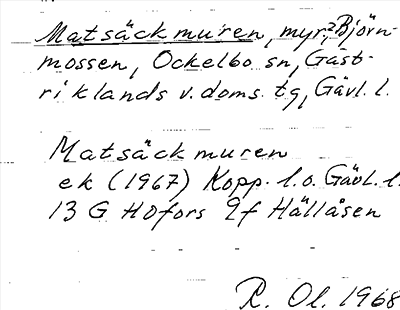 Matsäckmuren, myr, ? Björn-
mossen, Ockelbo sn, Gäst-
riklands v. doms. tg, Gävl. l.
Matsäckmuren
ek (1967) Kopp. l. o. Gävl. l.
13 G Hofors 9f Hällåsen
R. Ol. 1968